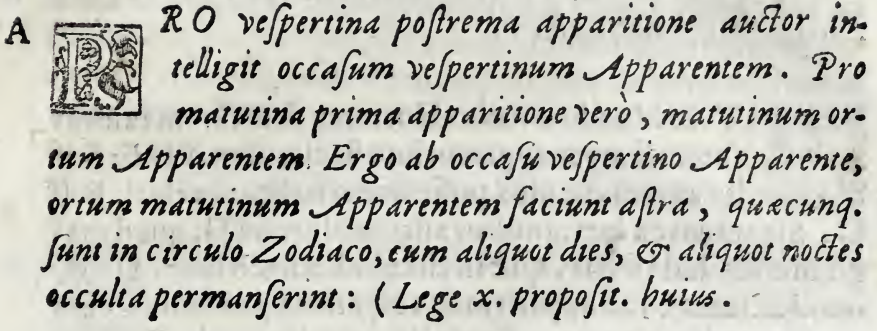 A PRO veſpertina poſtrema apparitione auctor in-
telligit occaſum veſpertinum Apparentem. Pro
matutina prima apparitione verò, matutinum or-
tum Apparentem. Ergo ab occaſu veſpertino Apparente,
ortum matutinum Apparentem faciunt aſtra, quæcunq.
ſunt in circulo Zodiaco, cum aliquot dies, & aliquot noctes
occulta permanſerint: (Lege x. propoſit. huius.